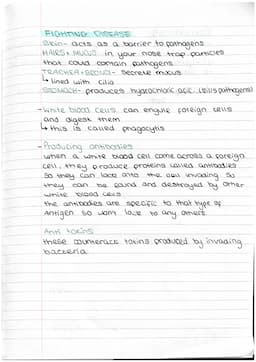 FIGHTING DISEASE
Skin - acts as a barrier to pathogens
HAIRS + MUCUS in your nose trap particles
that could contain pathogens
TRACHEA + BRONCHI - secrete mucus
↳ lined with cilia
STOMACH - produces hydrochloric acid (kills pathogens)
- White blood cells can engulf foreign cells
and digest them
↳ this is called phagocytis
- Producing antibodies
when a white blood cell come across a foreign
cell, they produce proteins called antibodies
so they can lock onto the cell invading so
they can be found and destroyed by other
white blood cells
the antibodies are specific to that type of
antigen so wont lock to any others.
Anti toxins
these counteract toxins produced by invading
bacteria